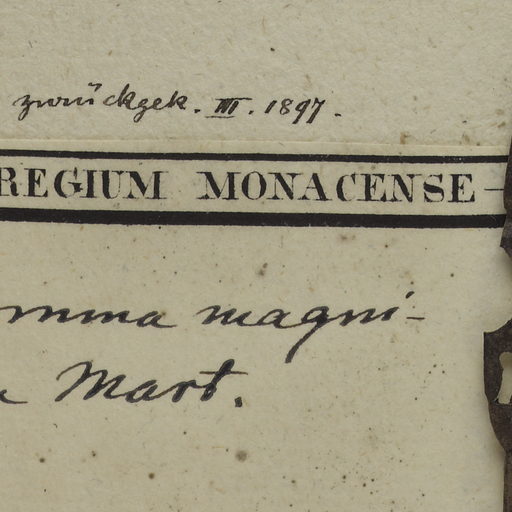 zurückgek. III. 1897.
REGIUM MONACENSE
mma magni-
Mart.